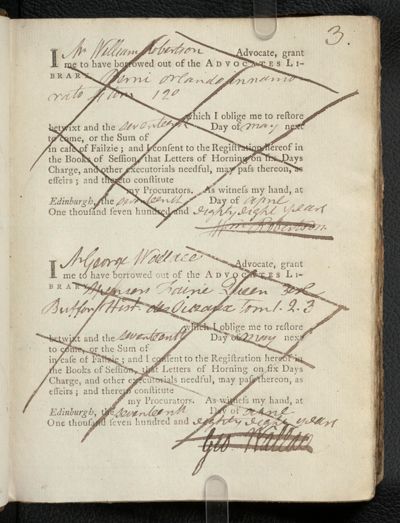 3.
I Mr William Robertson Advocate, grant
me to have borrowed out of the ADVOCATES LI-
BRARY Berni Orlando innamo
rato 4 vols 12o
which I oblige me to reſtore
betwixt and the seventeenth Day of may next
to come, or the Sum of
in caſe of Failzie; and I conſent to the Regiſtration hereof in
the Books of Seſſion, that Letters of Horning on ſix Days
Charge, and other executorials needful, may paſs thereon, as
effeirs; and thereto conſtitute
my Procurators. As witneſs my hand, at
Edinburgh, the seventeenth Day of april
One thouſand ſeven hundred and eighty eight years
Will: Robertson
I Mr George Wallace Advocate, grant
me to have borrowed out of the ADVOCATES LI-
BRARY Spensers Fairie Queen
Buffon Hist. des Oiseaux Tom. 1. 2. 3
which I oblige me to reſtore
betwixt and the seventeenth Day of may next
to come, or the Sum of
in caſe of Failzie; and I conſent to the Regiſtration hereof in
the Books of Seſſion, that Letters of Horning on ſix Days
Charge, and other executorials needful, may paſs thereon, as
effeirs; and thereto conſtitute
my Procurators. As witneſs my hand, at
Edinburgh, the seventeenth Day of april
One thouſand ſeven hundred and eighty eight years
Geo. Wallace